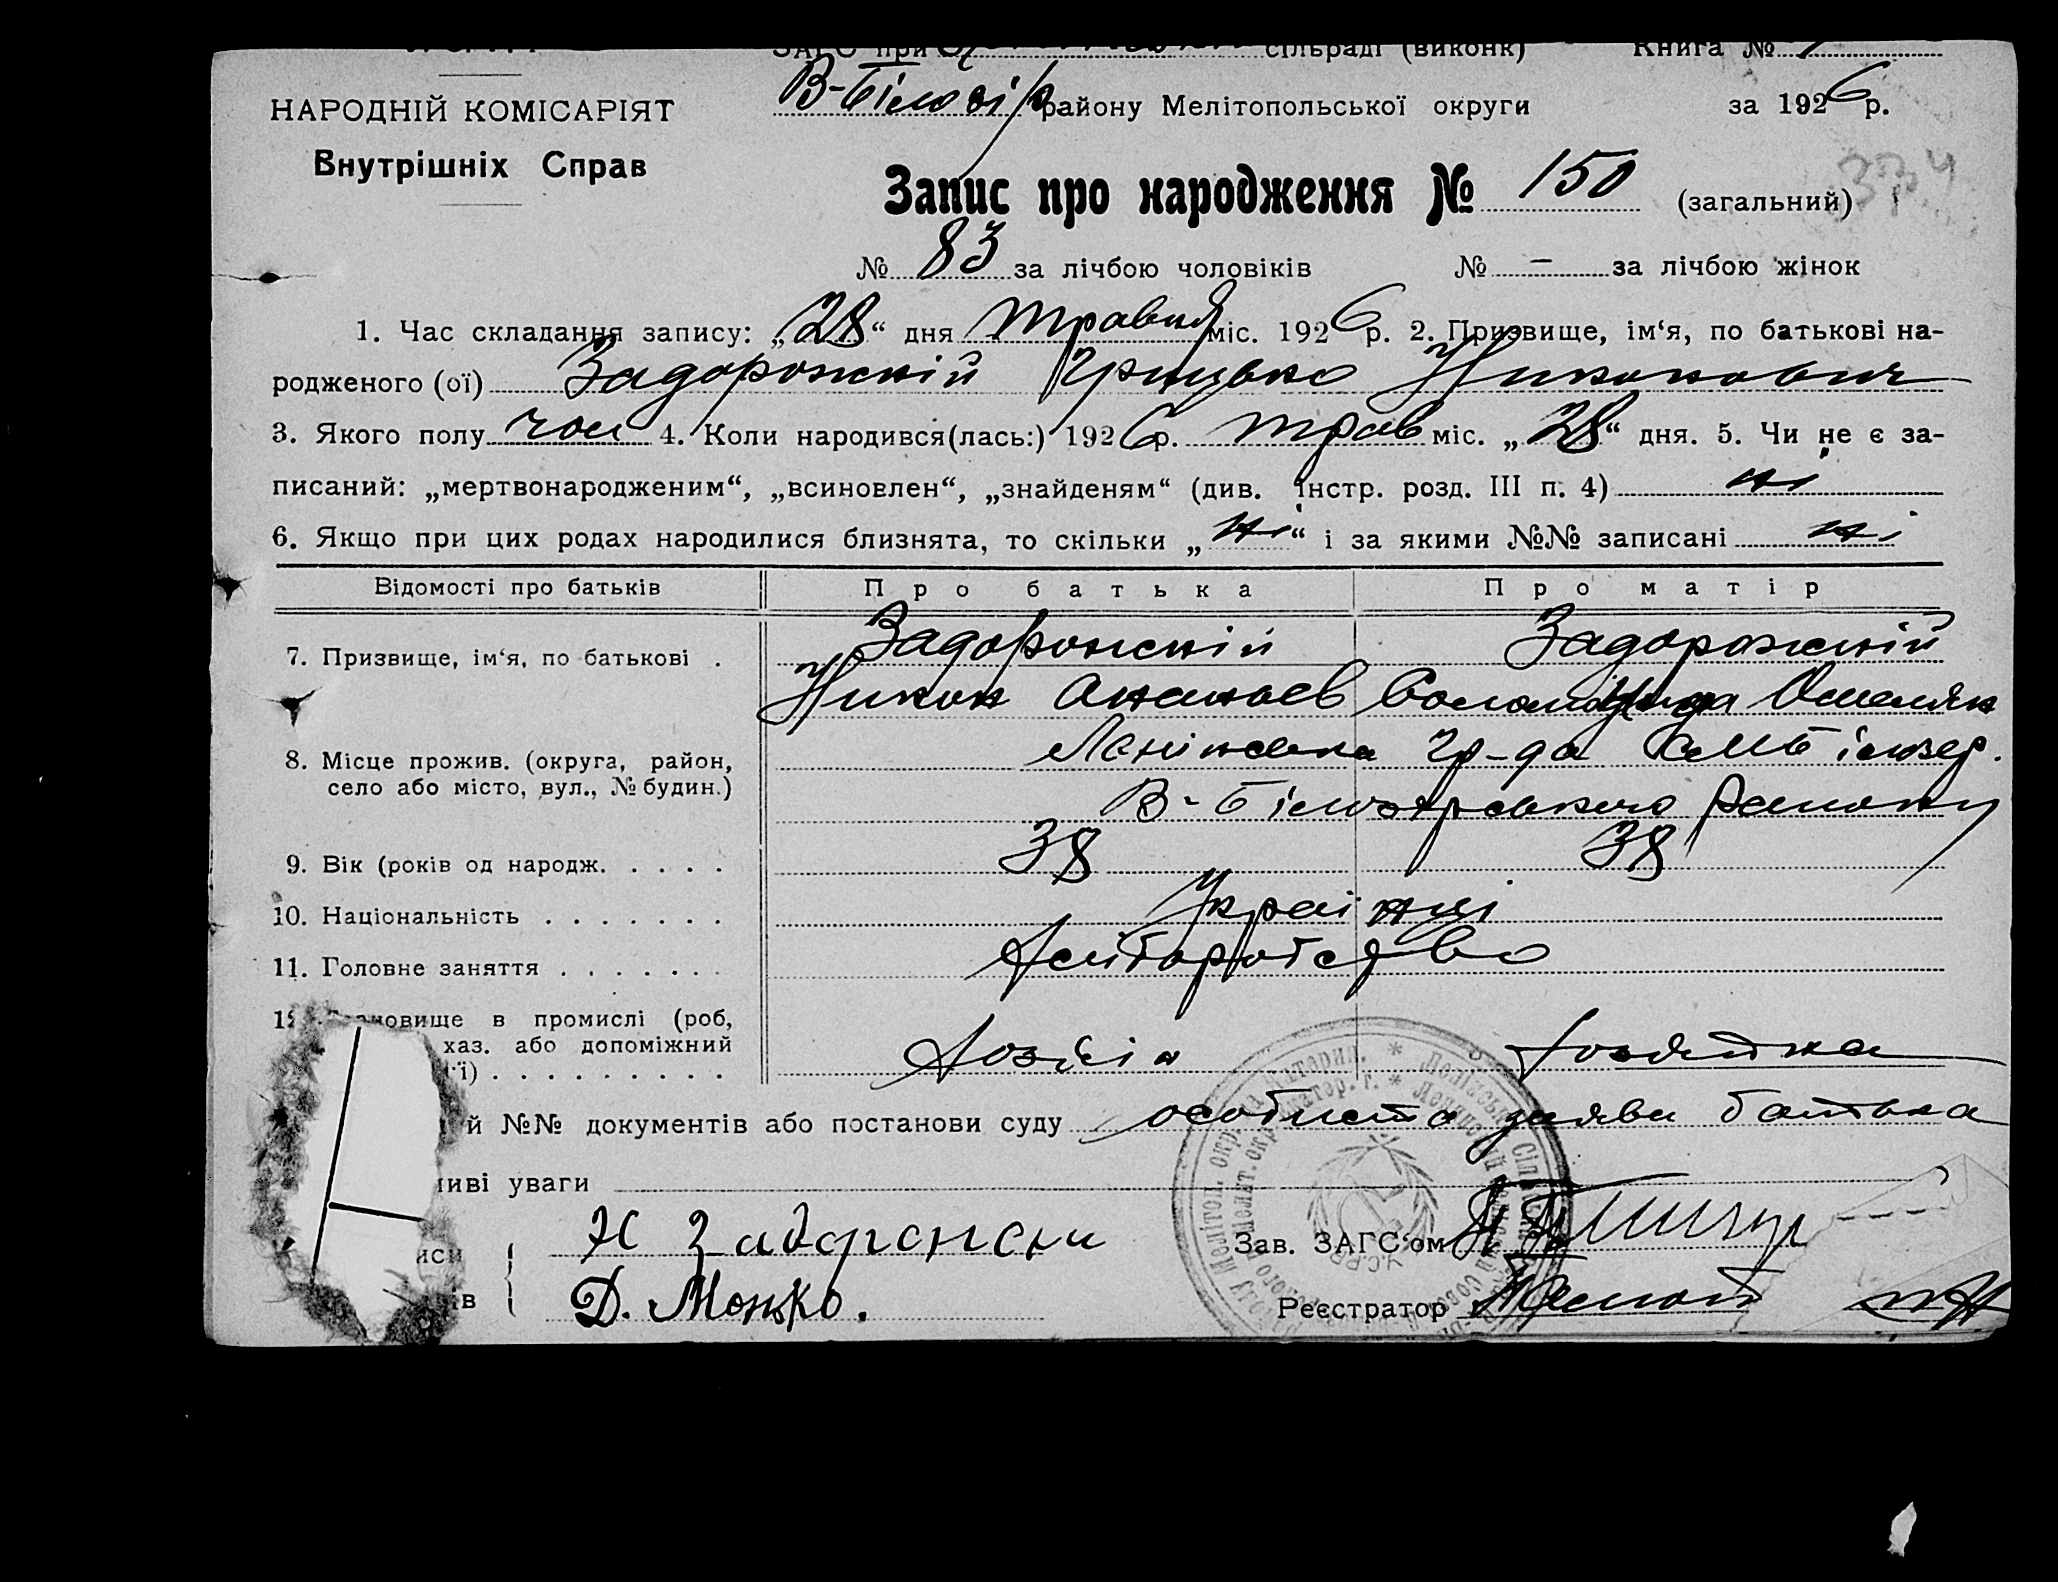 ЗАГС при сільраді (виконк) Книга №
В-Білозір району Мелітопольської округи за 1926 р.
НАРОДНІЙ КОМІСАРІЯТ
Внутрішніх Справ
Запис про народження № 150 (загальний)
№ 83 за лічбою чоловіків № — за лічбою жінок
1. Час складання запису: „28“ дня травня міс. 1926 р. 2. Призвище, ім‘я, по батькові на-
родженого (ої) Задорожній Грицько Никонович
3. Якого полу чол 4. Коли народився(лась:) 1926 р. трав міс. „28“ дня. 5. Чи не є за-
писаний: „мертвонародженим“, „всиновлен“, „знайденям“ (див. інстр. розд. III п. 4) ні
6. Якщо при цих родах народилися близнята, то скільки „ні“ і за якими №№ записані ні
Відомості про батьків Про батька Про матір
7. Призвище, ім‘я, по батькові . Задорожній Задорожній
Никон Ананьев
8. Місце прожив. (округа, район,
село або місто, вул., № будин.)
В-Білозерського району
9. Вік (років од народж. . . . . 38 38
10. Національність . . . . . . . Українці
11. Головне заняття . . . . . . . Хліборобство
12. Становище в промислі (роб,
хаз. або допоміжний
Хозяін хозяйка
й №№ документів або постанови суду особиста заява батька
ливі уваги
Н Задорожни
Зав. ЗАГС‘ом
Д. Монько.
Реєстратор